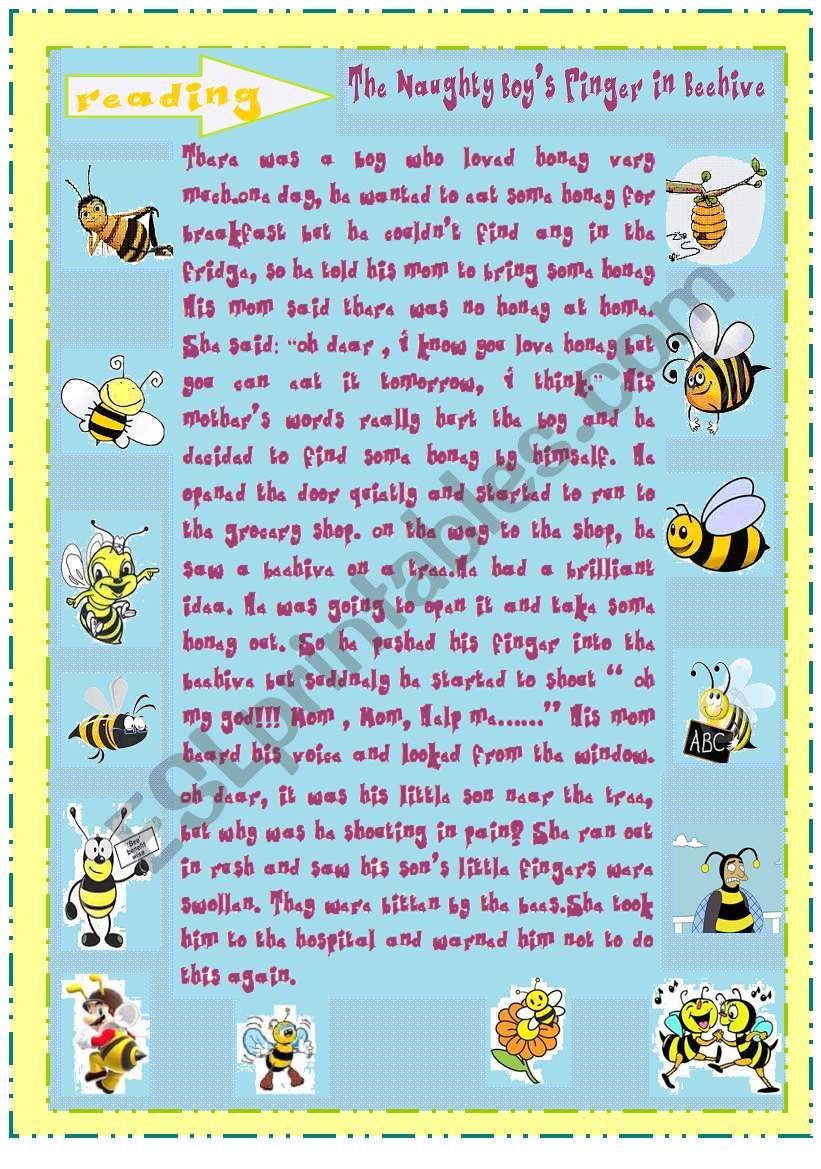 reading
The Naughty Boy's Finger in Beehive
There was a boy who loved honey very
much.one day, he wanted to eat some honey for
breakfast but he couldn't find any in the
fridge, so he told his mom to bring some honey
His mom said there was no honey at home.
She said: "oh dear , i know you love honey but
you can eat it tomorrow, i think." His
mother's words really hurt the boy and he
decided to find some honey by himself. He
opened the door quietly and started to run to
the grocery shop. on the way to the shop, he
saw a beehive on a tree.He had a brilliant
idea. He was going to open it and take some
honey out. So he pushed his finger into the
beehive but suddnely he started to shout " oh
my god!!! Mom , Mom, Help me......" His mom
heard his voice and looked from the window.
oh dear, it was his little son near the tree,
but why was he shouting in pain? She ran out
in rush and saw his son's little fingers were
swollen. They were bitten by the bees.She took
him to the hospital and warned him not to do
this again.
ABC
"Bee
benefit
wise
ESLprintables.com